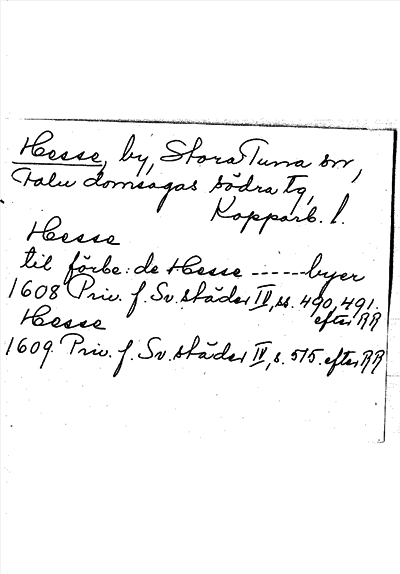 Hesse, by, Stora Tuna sn,
Falu domsagas södra tg,
Kopparb. l.
Hesse
til förbe: de Hesse ----- byer
1608 Priv. f. Sv. städer IV, ss. 490, 491.
efter RR
Hesse
1609 Priv. f. Sv. städer IV, s. 515. efter RR